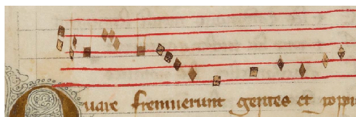 Quare fremuerunt gentes et popu